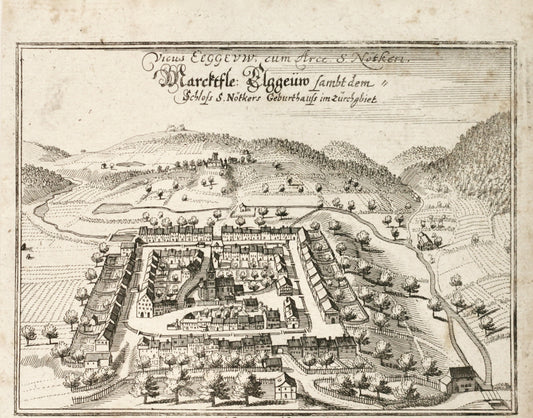 Vicus ELGGEVW, cum Arce S. Nötkeri.
Marcktfle: Elggeuw sambt dem
Schloss S. Nötkers Geburthauss im Zürchgbiet